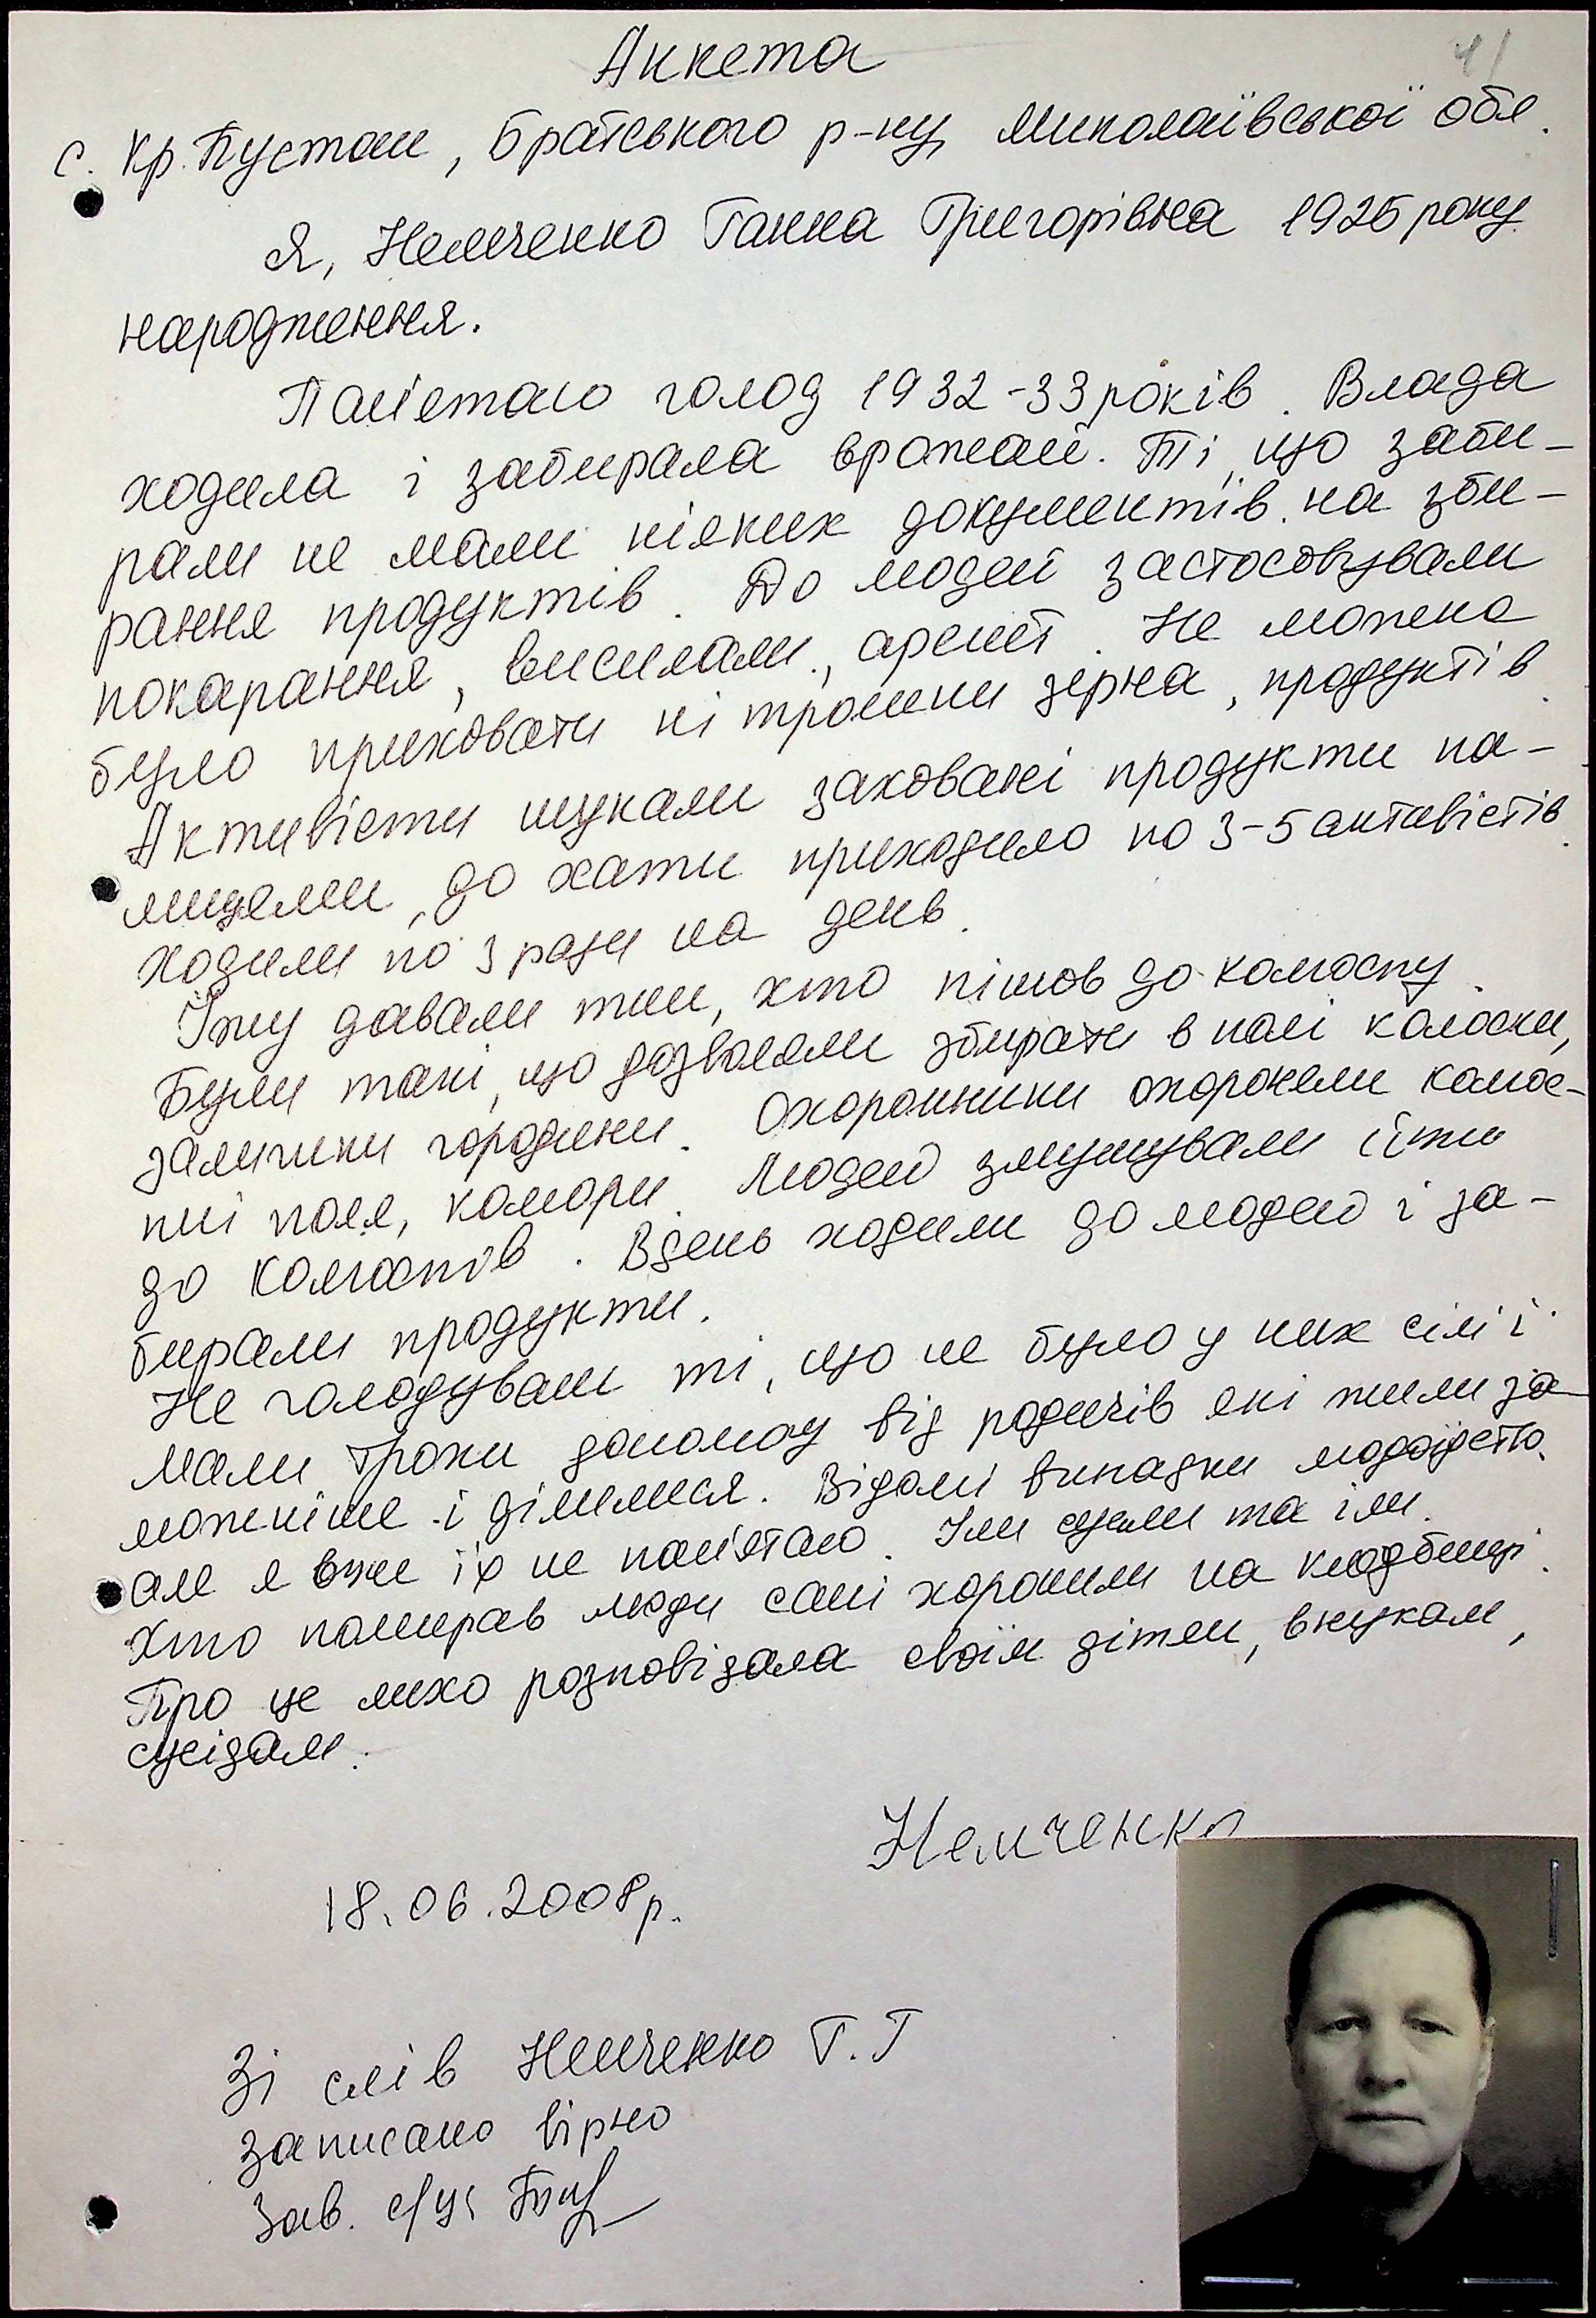 41
Анкета
с. Кр. Пустош, Братського р-ну, Миколаївської обл.
Я, Немченко Ганна Григорівна 1925 року
народження.
Пам'ятаю голод 1932-33 років. Влада
ходила і забирала врожай. Ті, що заби-
рали не мали ніяких документів на зби-
рання продуктів. До людей застосовували
покарання, висилали, арешт. Не можна
було приховати ні трошки зерна, продуктів.
Активісти шукали заховані продукти па-
лицями, до хати приходило по 3-5 активістів.
Ходили по 3 рази на день.
Їжу давали тим, хто пішов до колгоспу.
Були такі, що дозволяли збирати в полі колоски,
залишки городини. Охоронники охороняли колгос-
пні поля, комори. Людей змушували йти
до колгоспів. Вдень ходили до людей і за-
бирали продукти.
Не голодували ті, що не було у них сім'ї і
мали трохи допомогу від родичів які жили за-
можніше і ділилися. Відомі випадки людоїдства,
але я вже їх не пам'ятаю. Їли
Хто помирав люди самі хоронили на кладбищі.
Про це лихо розповідала своїм дітям, внукам,
сусідам.
Немченко
18.06.2008р.
Зі слів Немченко Г.Г
записано вірно
Зав.